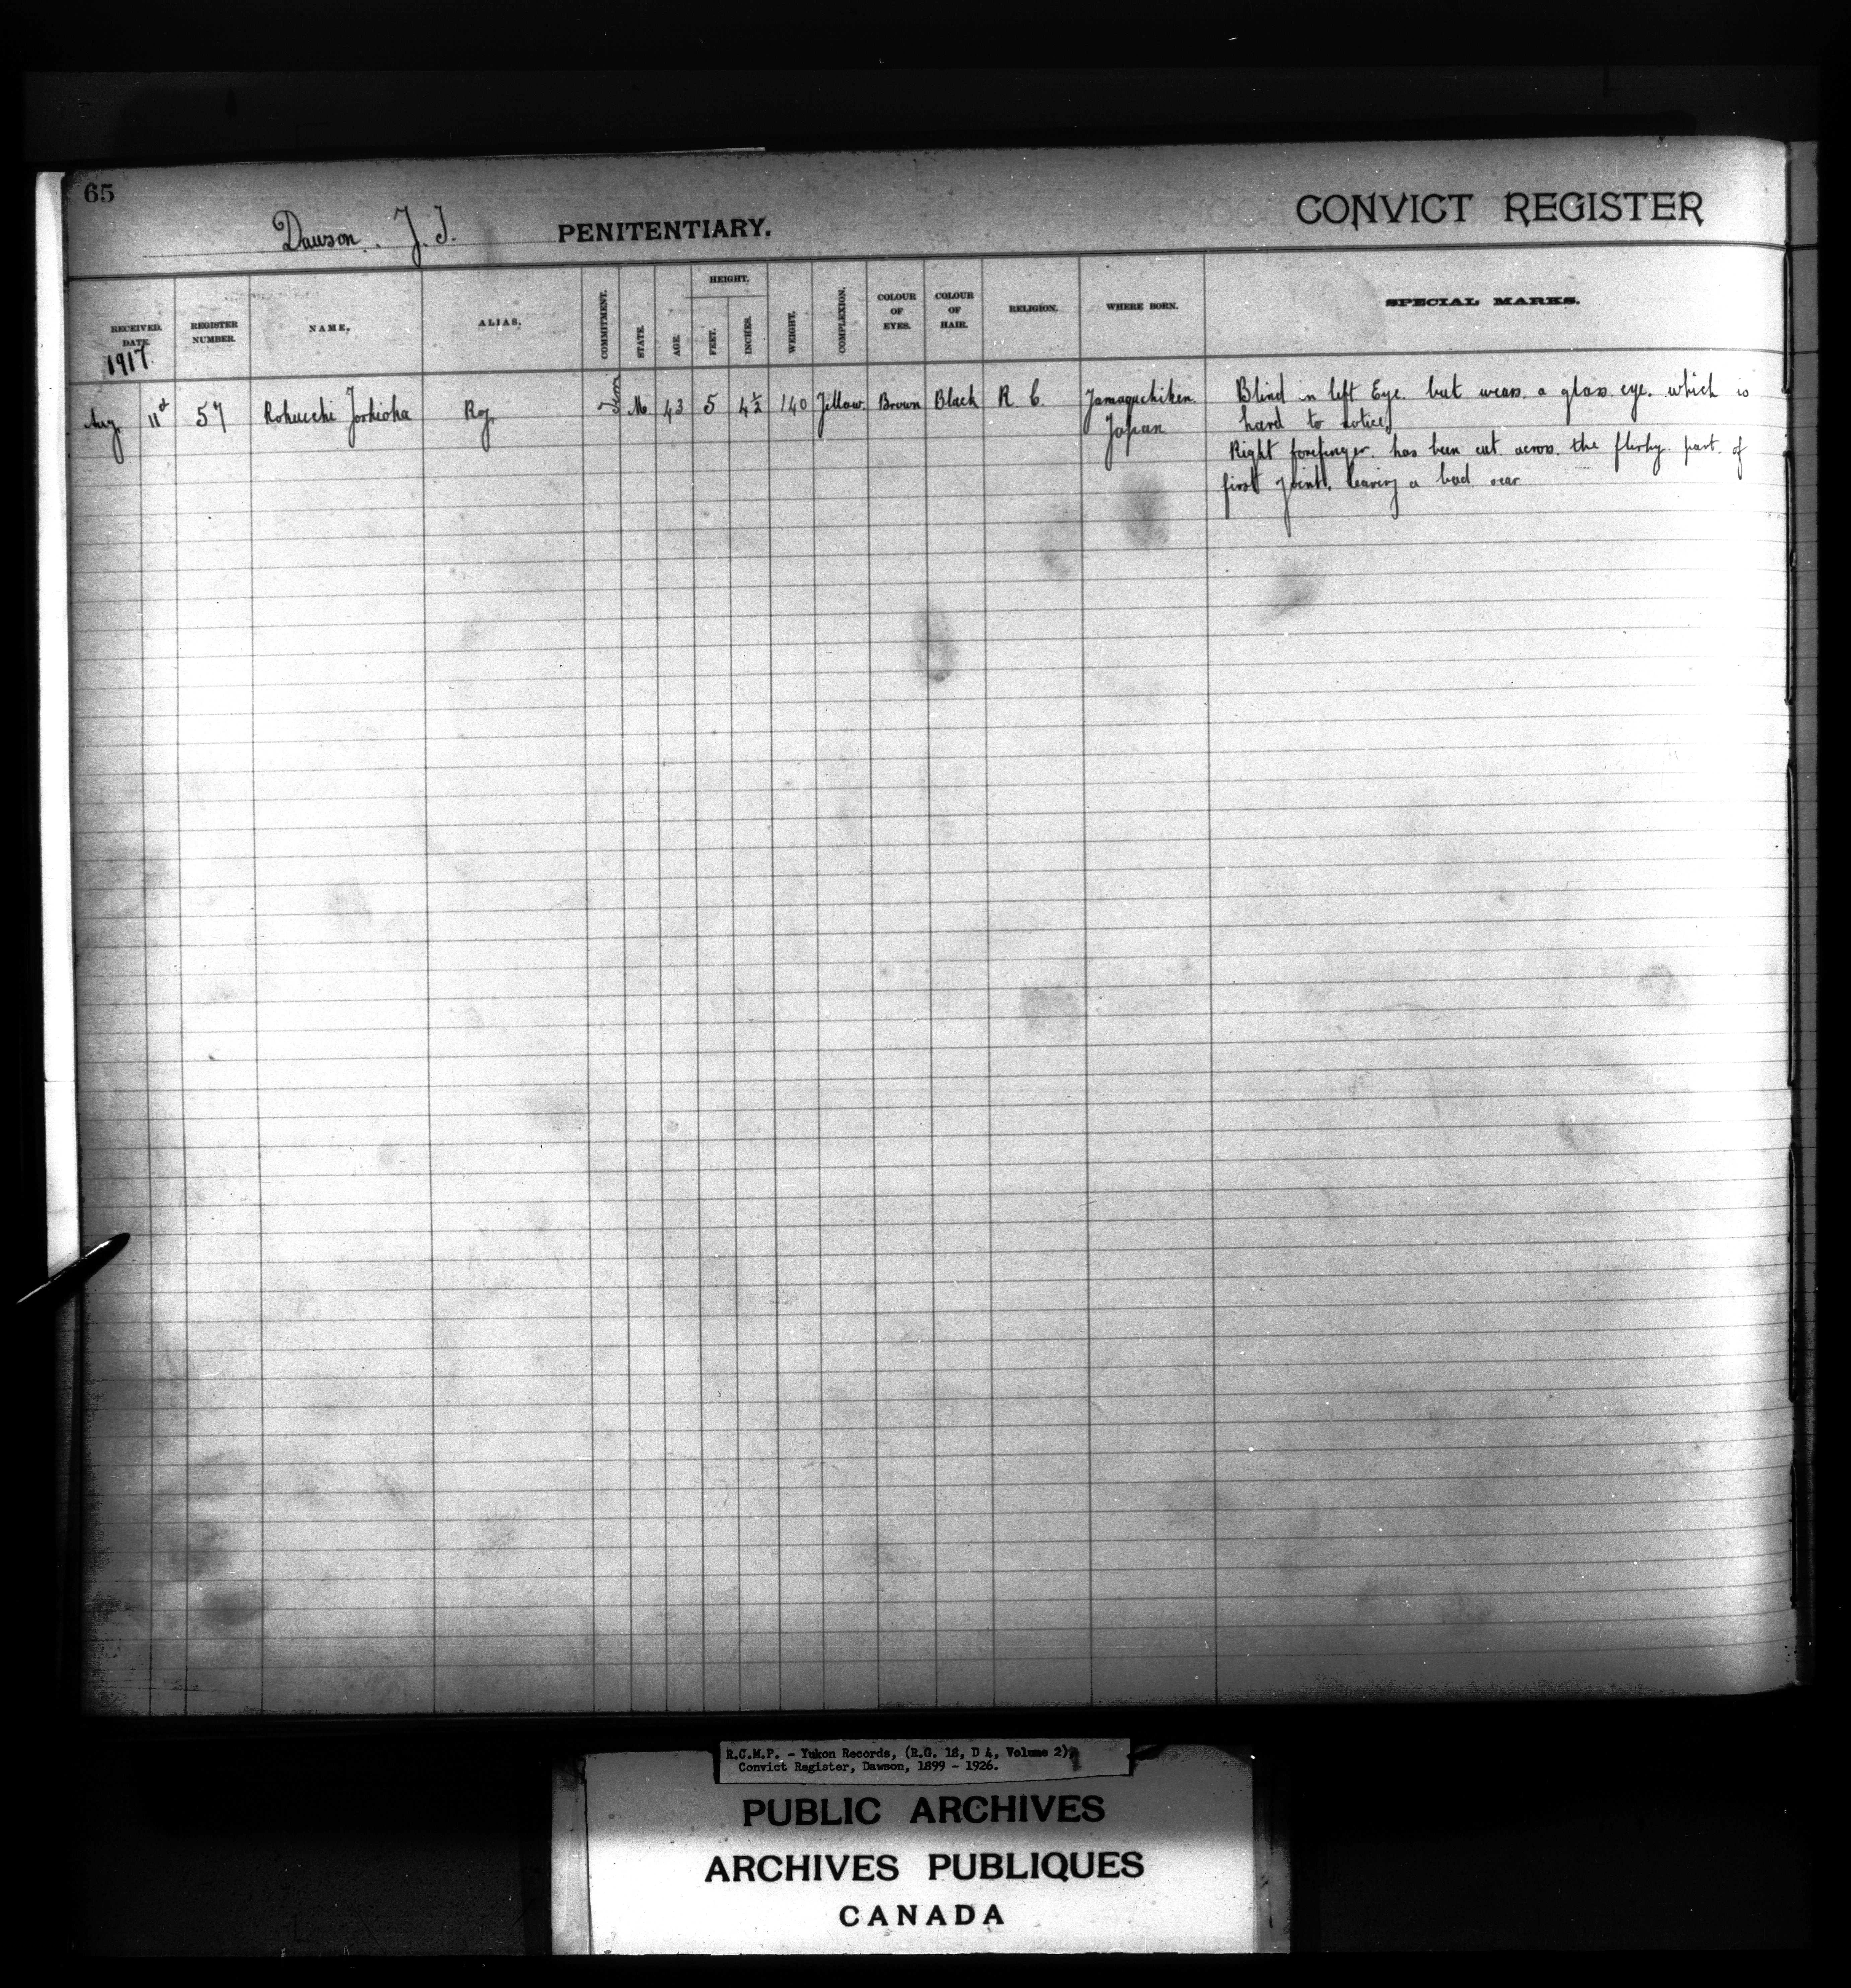 65
Dawson. Y.T. PENITENTIARY. CONVICT REGISTER
RECEIVED. DATE. 1917. REGISTER NUMBER. NAME. ALIAS. COMMITMENT. STATE. AGE. HEIGHT. FEET. INCHES. WEIGHT. COMPLEXION. COLOUR OF EYES. COLOUR OF HAIR. RELIGION. WHERE BORN. SPECIAL MARKS.
Aug. 11th 57 Rokucchi Yoshioka Roy M. 43 5 4½ 140 Yellow. Brown Black R. C. Yamaguchiken. Blind in left Eye. but wears a glass eye. which is
Japan hard to notice,
Right forefinger has been cut across the fleshy part of
first joint, leaving a bad scar
R.C.M.P. - Yukon Records, (R.G. 18, D 4, Volume 2),
Convict Register, Dawson, 1899 - 1926.
PUBLIC ARCHIVES
ARCHIVES PUBLIQUES
CANADA